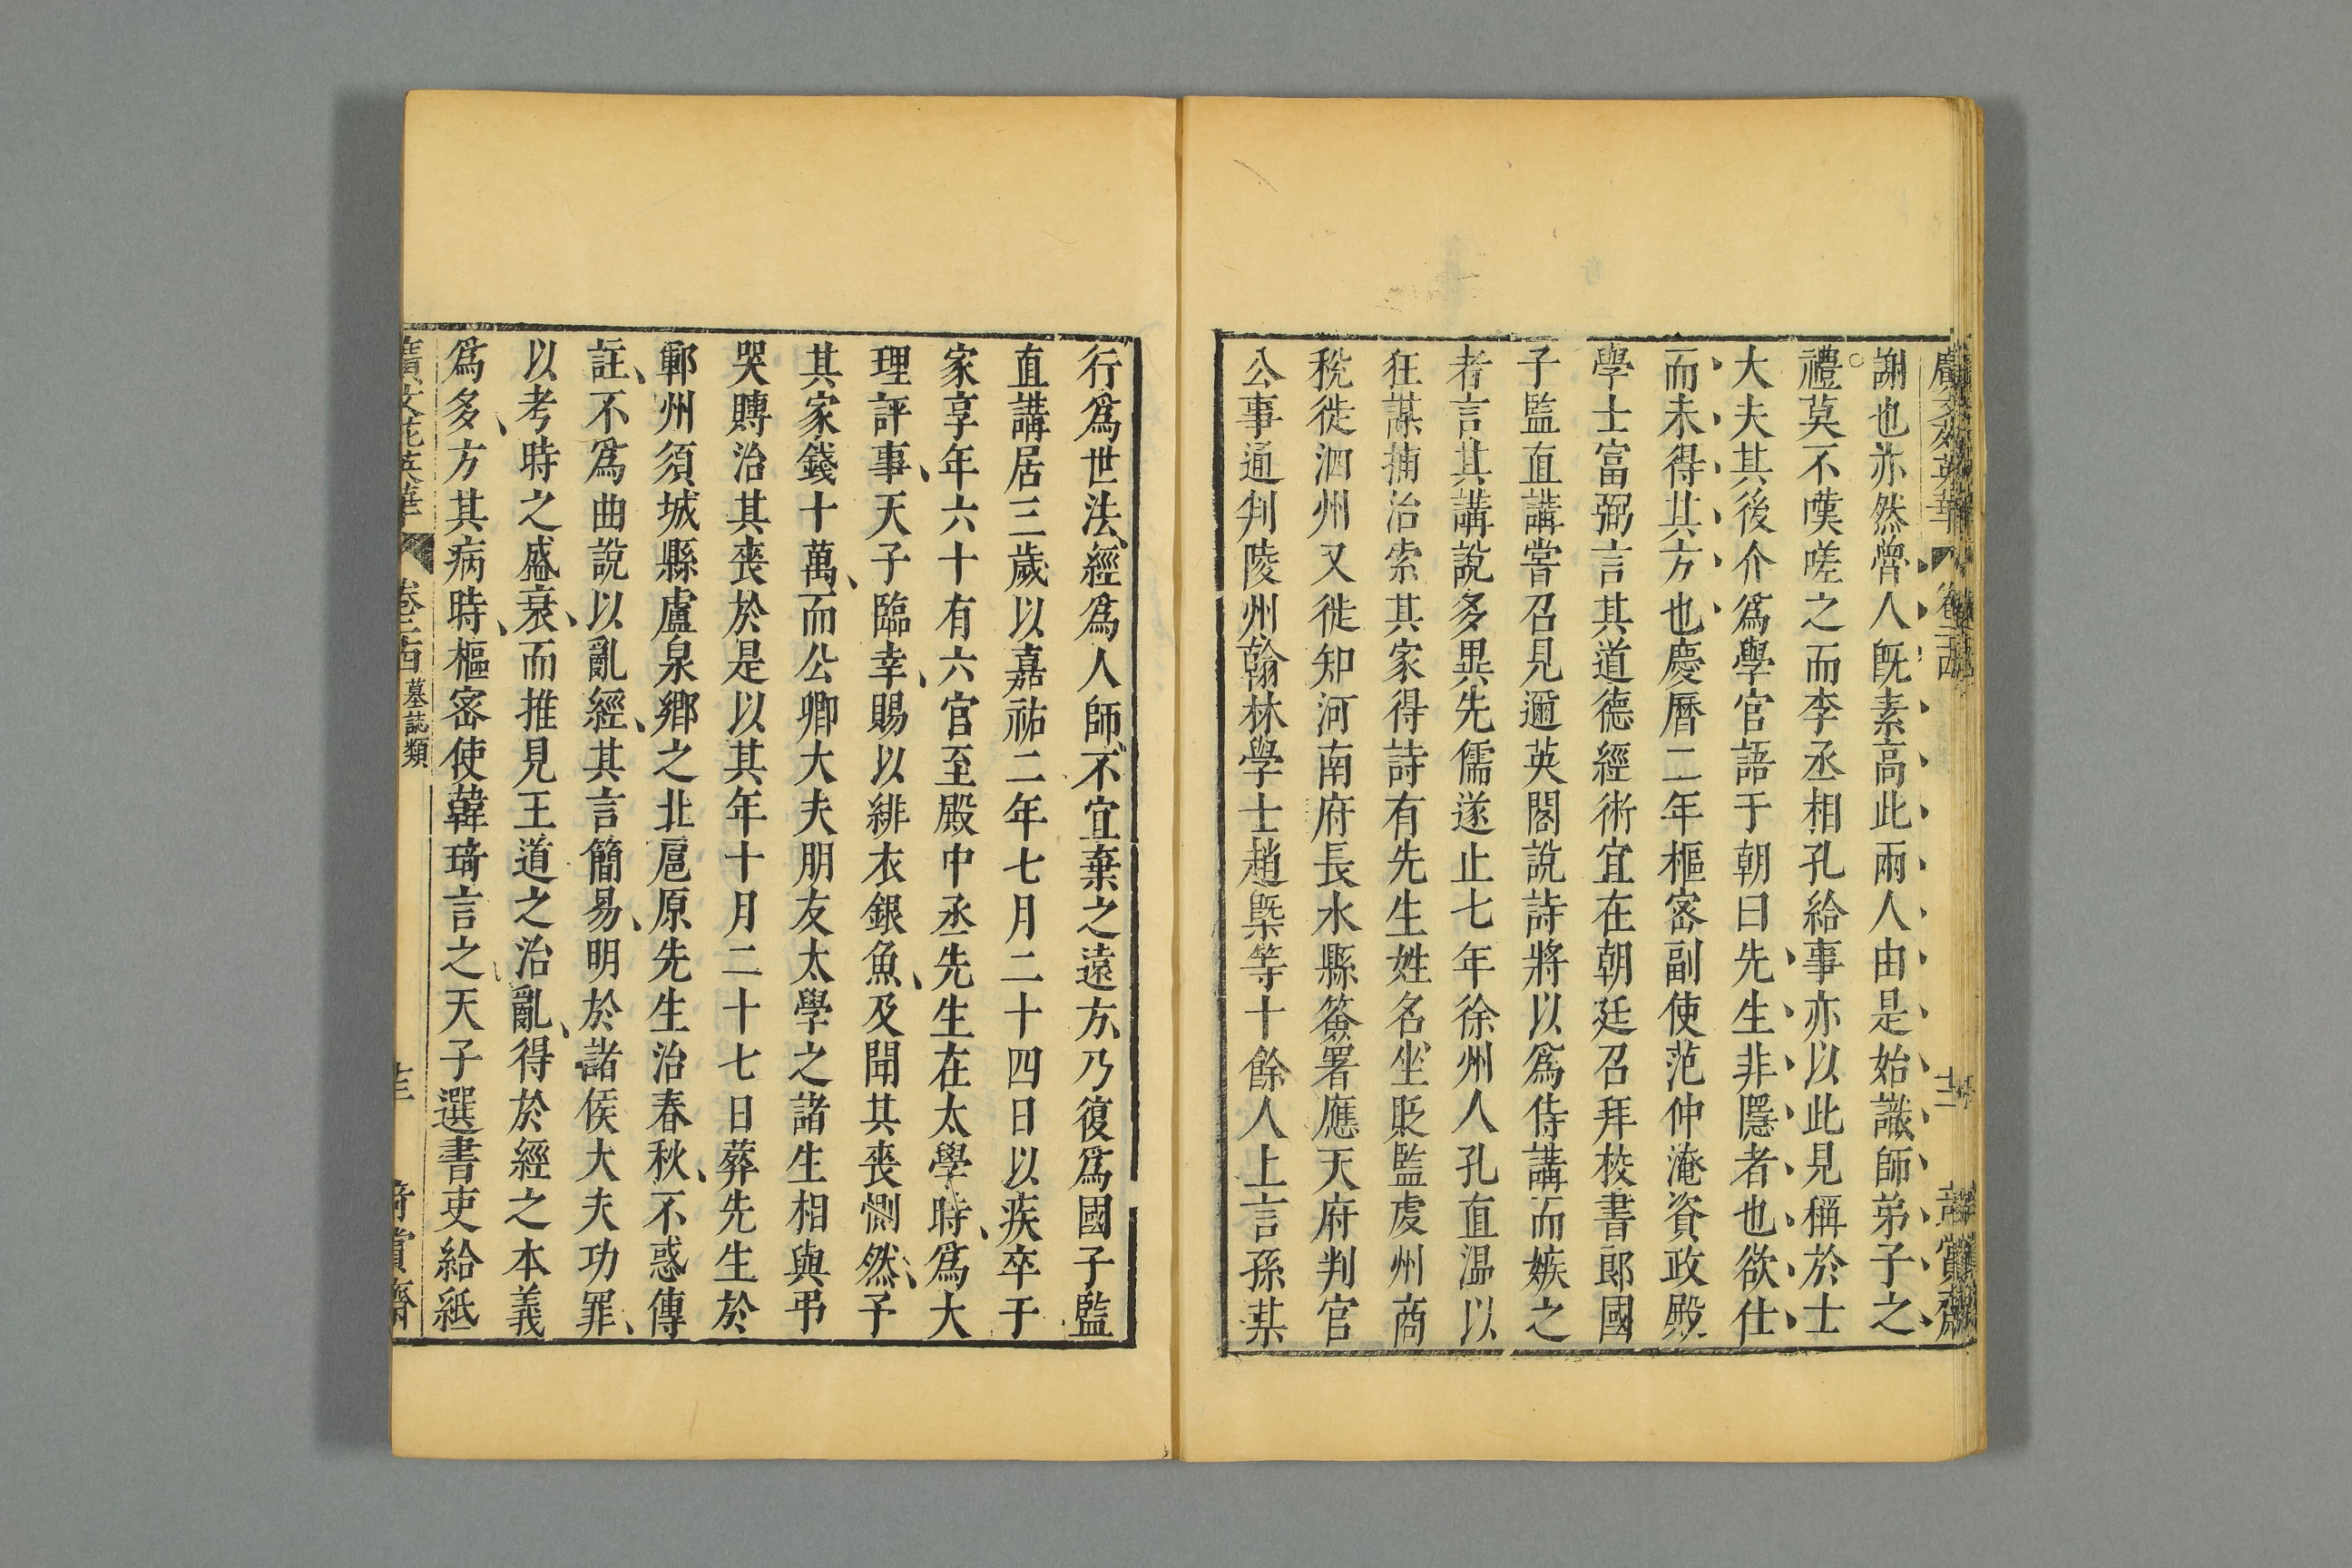 謝也亦然魯人旣素高此兩人由是始識師弟子之
禮莫不嘆嗟之而李丞相孔給事亦以此見稱於士
大夫其後介爲學官語于朝曰先生非隱者也欲仕
而未得其方也慶曆二年樞密副使范仲淹資政殿
學士富弼言其道德經術宜在朝廷召拜校書郎國
子監直講嘗召見邇英閣說詩將以爲侍講而嫉之
者言其講說多異先儒遂止七年徐州人孔直溫以
狂謀捕治索其家得詩有先生姓名坐貶監虔州商
稅徙泗州又徙知河南府長水縣簽署應天府判官
公事通判陵州翰林學士趙槩等十餘人上言孫某
行爲世法經爲人師不宜棄之遠方乃復爲國子監
直講居三歲以嘉祐二年七月二十四日以疾卒于
家享年六十有六官至殿中丞先生在太學時爲大
理評事天子臨幸賜以緋衣銀魚及聞其喪惻然予
其家錢十萬而公卿大夫朋友太學之諸生相與弔
哭賻治其喪於是以其年十月二十七日葬先生於
鄆州須城縣盧泉鄉之北扈原先生治春秋不惑傳
註不爲曲說以亂經其言簡易明於諸侯大夫功罪
以考時之盛衰而推見王道之治亂得於經之本義
爲多方其病時樞密使韓琦言之天子選書吏給紙
廣文苑英華 墓誌類